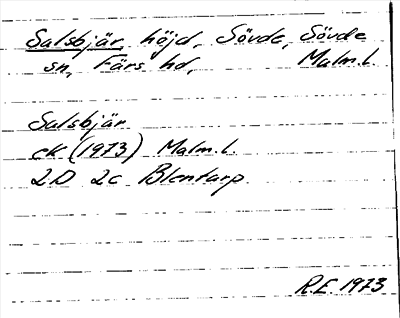 Salsbjär, höjd, Sövde, Sövde
sn, Färs hd, Malm.l.
Salsbjär
ek (1973) Malm.l.
2D 2c Blentarp
R.E. 1973